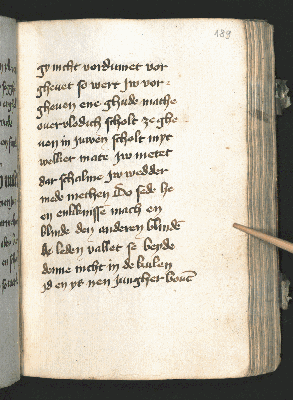 189
gy nicht vordumet vor
gheuet so wert jw vor-
gheuen ene ghude mathe
ouervlodich scholt ze ghe
uen in juwen scholt myt
welker mate jw metet
dar schalme jw wedder
mede methen Do sede he
en entkenisse mach en
blinde den anderen blinde
de leden vallet se beyde
denne nicht in de kulen
jd en yt nen jungher bouē